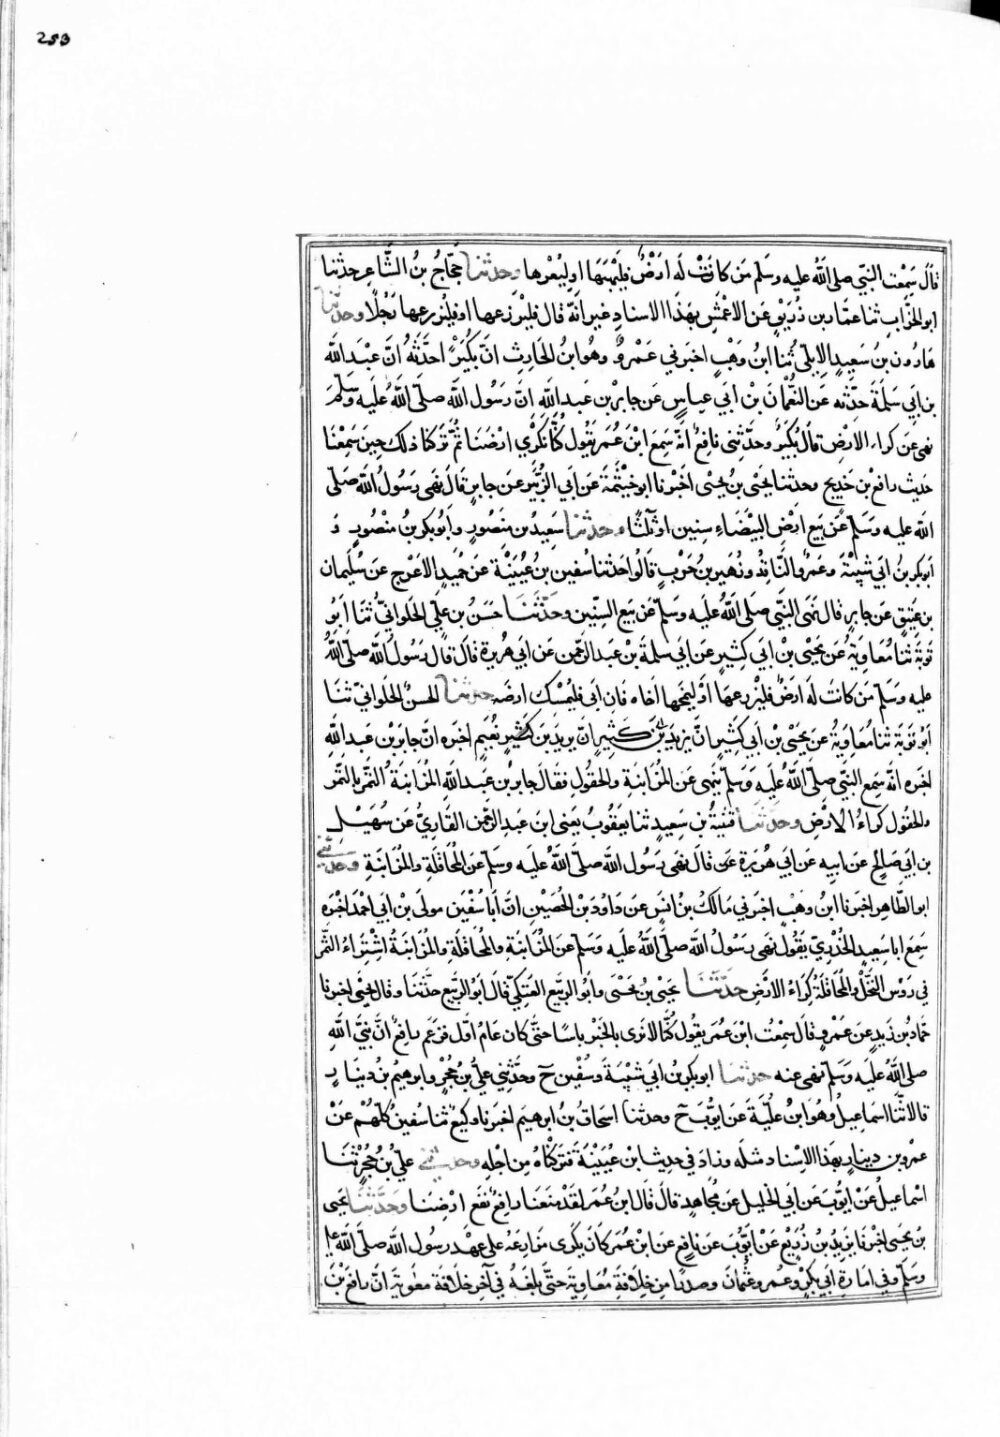 253
قال سمعت النبي صلى الله عليه وسلم من كانت له ارض فليهبها اوليعرها وحدثنا حجاج بن الشاعر حدثنا
ابو الجواب ثنا عمار بن زريق عن الاعمش بهذا الاسناد غير انه قال فليزرعها او فليزرعها رجلا وحدثنا
هارون بن سعيد الايلي ثنا ابن وهب اخبرني عمرو وهو ابن الحارث ان بكيرا حدثه ان عبد الله
بن ابي سلمة حدثه عن النعمان بن ابي عياس عن جابر بن عبد الله ان رسول الله صلى الله عليه وسلم
نهى عن كراء الارض قال بكير وحدثني نافع انه سمع ابن عمر يقول كنا نكري ارضنا ثم تركنا ذلك حين سمعنا
حديث رافع بن خديج وحدثنا يحيى بن يحيى اخبرنا ابو خيثمة عن ابي الزبير عن جابر قال نهى رسول الله صلى
الله عليه وسلم عن بيع ارض البيضاء سنين او ثلثا وحدثنا سعيد بن منصور وابو بكر بن منصور و
ابو بكر بن ابي شيبة وعمرو الناقد وزهير بن حرب قالوا حدثنا سفين بن عيينة عن حميد الاعرج عن سليمان
بن عتيق عن جابر قال نهى النبي صلى الله عليه وسلم عن بيع السنين وحدثنا حسن بن علي الحلواني ثنا ابو
توبة ثنا معاوية عن يحيى بن ابي كثير عن ابي سلمة بن عبد الرحمن عن ابي هريرة قال قال رسول الله صلى الله
عليه وسلم من كانت له ارض فليزرعها او ليمنحها اخاه فان ابى فليمسك ارضه حدثنا الحسن الحلواني ثنا
ابو توبة ثنا معاوية عن يحيى بن ابي كثير ان يزيد بن كثير ان يزيد بن كثير نعيم اخبره ان جابر بن عبد الله
اخبره انه سمع النبي صلى الله عليه وسلم ينهى عن المزابنة والحقول فقال جابر بن عبد الله المزابنة الثمر بالتمر
والحقول كراء الارض وحدثنا قتيبة بن سعيد ثنا يعقوب يعني ابن عبد الرحمن القاري عن سهيل
بن ابي صالح عن ابيه عن ابي هريرة قال نهى رسول الله صلى الله عليه وسلم عن المحاقلة والمزابنة وحدثني
ابو الطاهر اخبرنا ابن وهب اخبرني مالك بن انس عن داود بن الحصين ان ابا سفين مولى بن ابي احمد اخبره
سمع ابا سعيد الخدري يقول نهى رسول الله صلى الله عليه وسلم عن المزابنة والمحاقلة والمزابنة اشتراء الثمر
في روس النخل والمحاقلة كراء الارض حدثنا يحيى بن يحيى وابو الربيع العتكي قال ابو الربيع حدثنا وقال يحيى اخبرنا
حماد بن زيد عن عمرو قال سمعت ابن عمر يقول كنا لا نرى بالخبر باسا حتى كان عام اول فزعم رافع ان نبي الله
صلى الله عليه وسلم نهى عنه حدثنا ابو بكر بن ابي شيبة وسفين ح وحدثني علي بن حجر وابرهيم بن دينار
قالا ثنا اسماعيل وهو ابن علية عن ايوب ح وحدثنا اسحاق بن ابرهيم اخبرنا وكيع ثنا سفين كلهم عن
عمرو بن دينار بهذا الاسناد مثله وزاد في حديث ابن عيينة فتركناه من اجله وحدثني علي بن حجر ثنا
اسماعيل عن ايوب عن ابي الخليل عن مجاهد قال قال ابن عمر لقد منعنا رافع نفع ارضنا وحدثنا يحيى
بن يحيى اخبرنا يزيد بن زريع عن ايوب عن نافع عن ابن عمر كان يكرى مزارعه على عهد رسول الله صلى الله عليه
وسلم وفي امارة ابي بكر وعمر وعثمان وصدرا من خلافة معاوية حتى بلغه في آخر خلافة معوية ان رافع بن